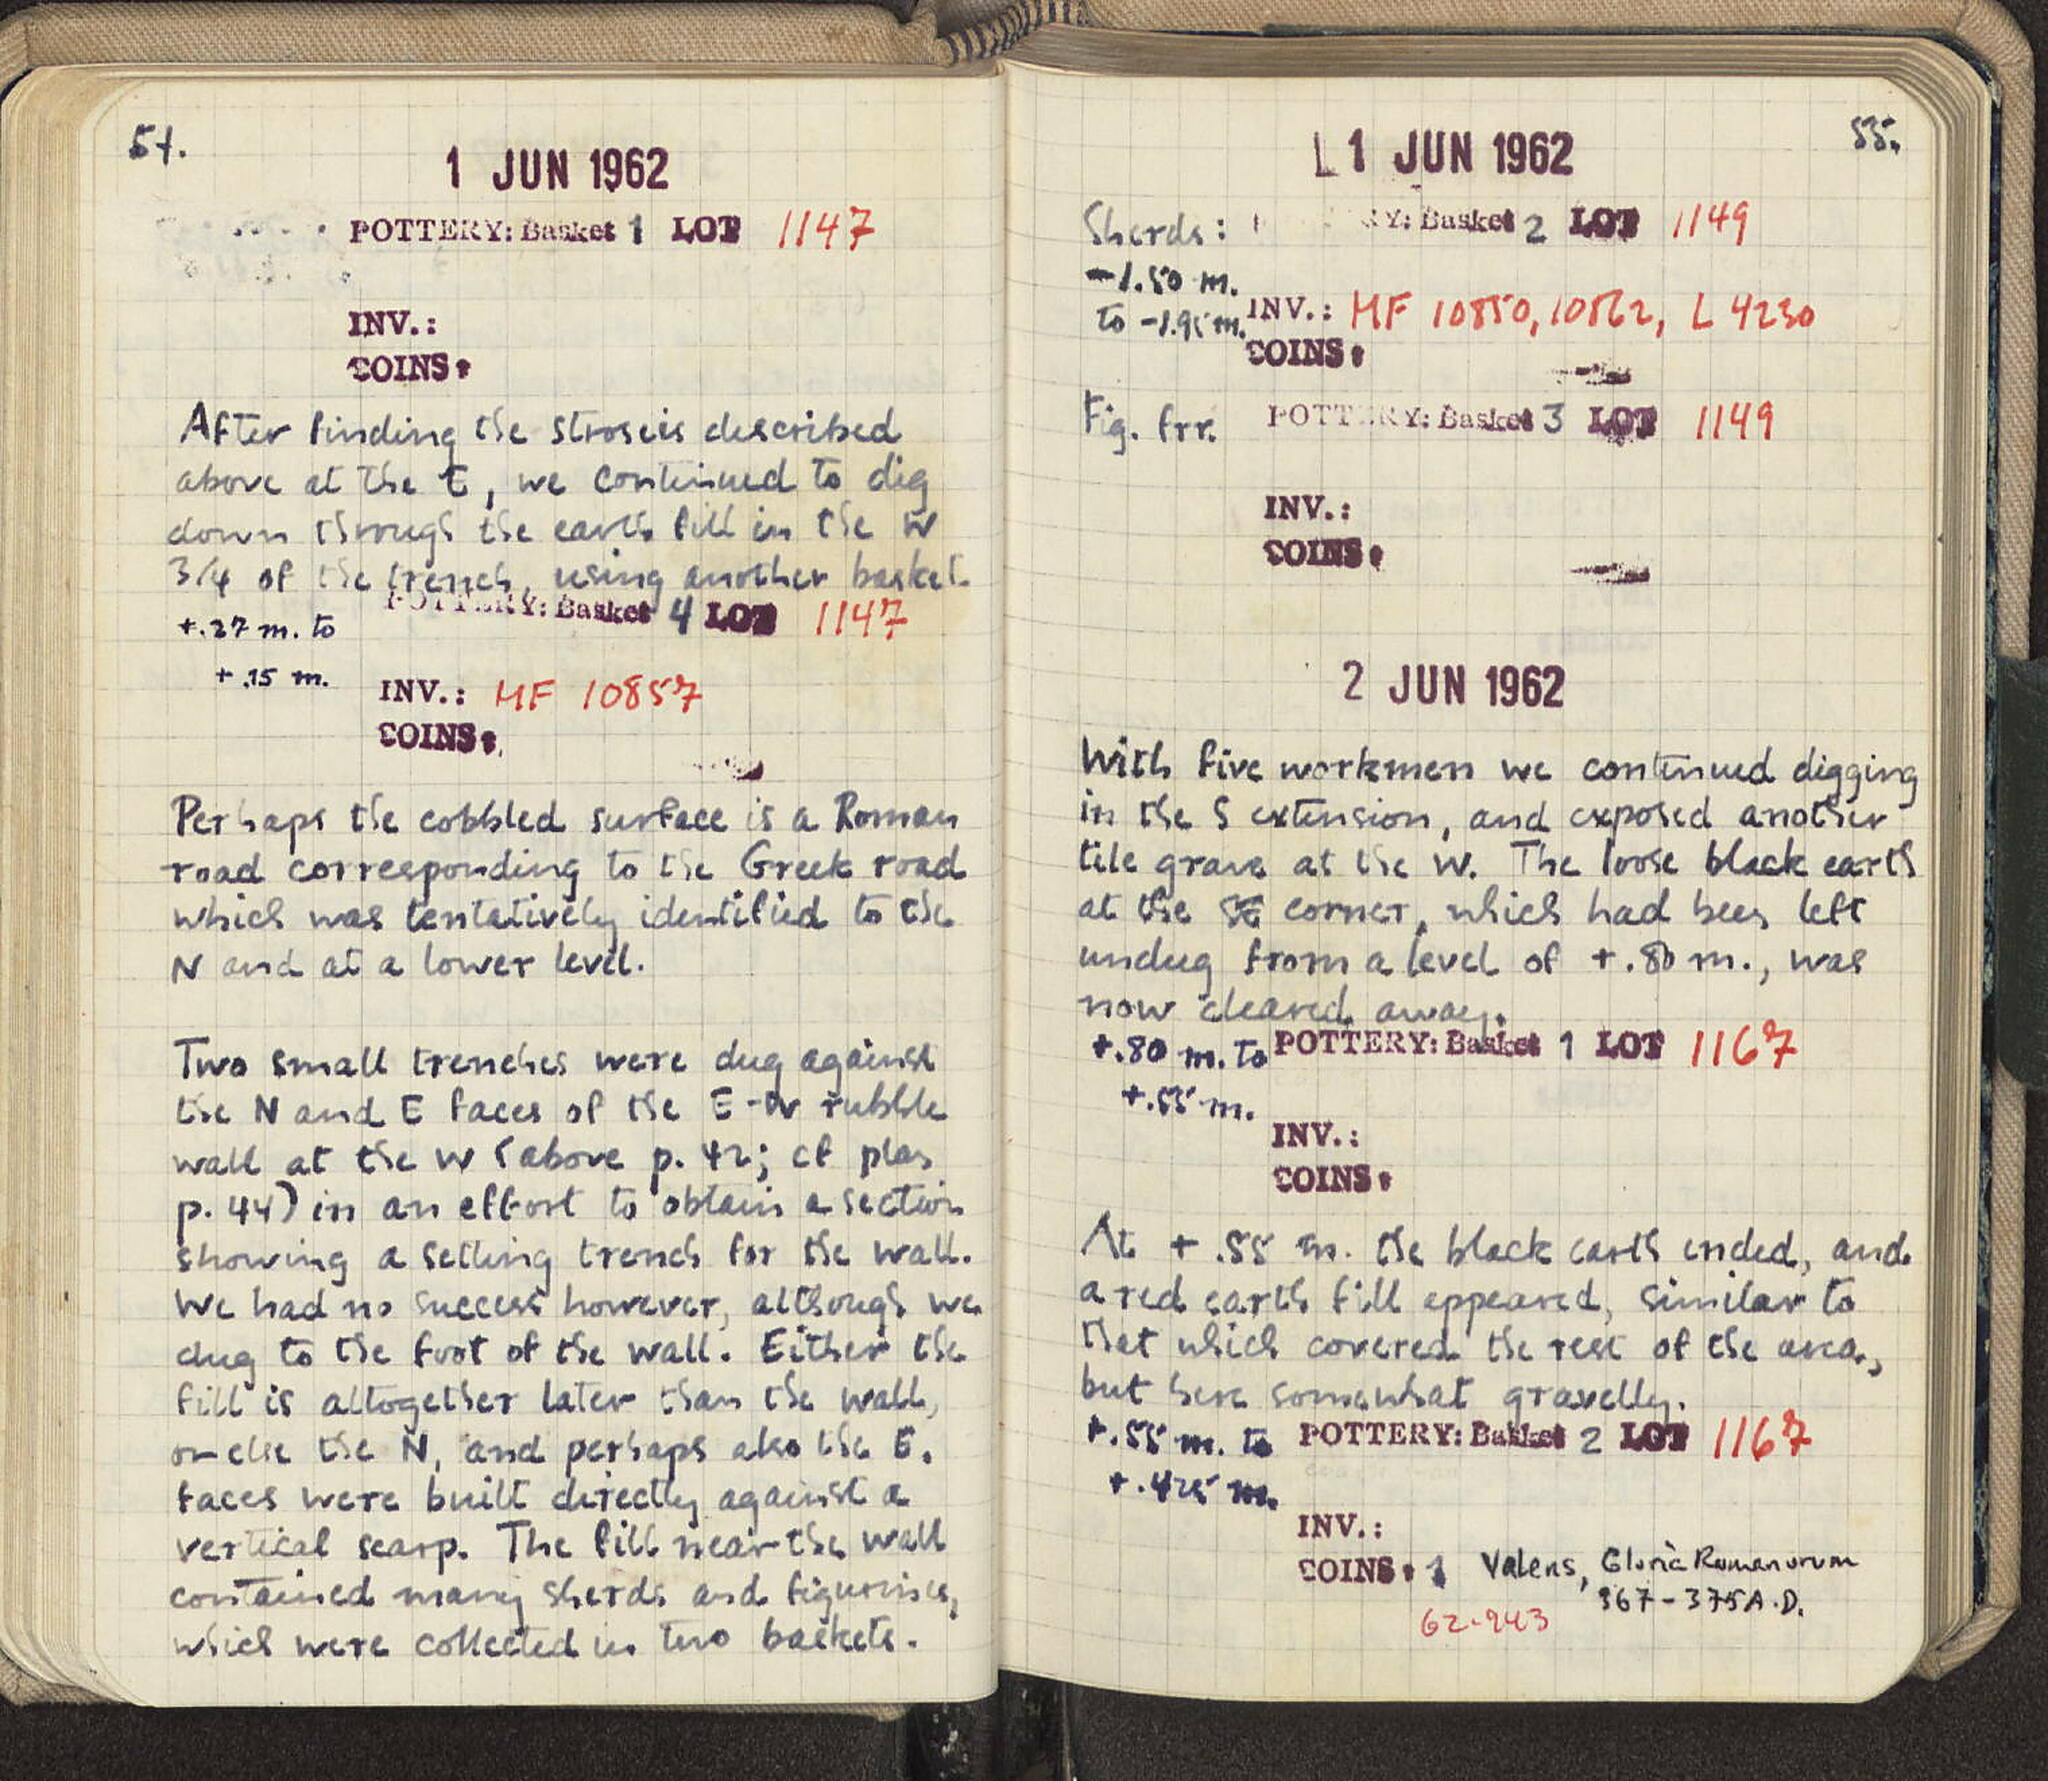 54.
1 JUN 1962
POTTERY: Basket 1 LOT 1147
INV.:
COINS:
After finding the strosis described
above at the E, we continued to dig
down through the earth fill in the W
3/4 of the trench, using another basket.
+.27 m. to POTTERY: Basket 4 LOT 1147
+.15 m.
INV.: MF 10857
COINS:
Perhaps the cobbled surface is a Roman
road corresponding to the Greek road
which was tentatively identified to the
N and at a lower level.
Two small trenches were dug against
the N and E faces of the E-W rubble
wall at the W (above p. 42; cf plan
p. 44) in an effort to obtain a section
showing a setting trench for the wall.
We had no success however, although we
dug to the foot of the wall. Either the
fill is altogether later than the wall,
or else the N, and perhaps also the E.
faces were built directly against a
vertical scarp. The fill near the wall
contained many sherds and figurines,
which were collected in two baskets.
55.
1 JUN 1962
Sherds: POTTERY: Basket 2 LOT 1149
-1.50 m.
to -1.95 m. INV.: MF 10850, 10862, L 4230
COINS:
Fig. frr. POTTERY: Basket 3 LOT 1149
INV.:
COINS:
2 JUN 1962
With five workmen we continued digging
in the S extension, and exposed another
tile grave at the W. The loose black earth
at the SE corner, which had been left
undug from a level of +.80 m., was
now cleared away.
+.80 m. to POTTERY: Basket 1 LOT 1167
+.55 m.
INV.:
COINS:
At +.55 m. the black earth ended, and
a red earth fill appeared, similar to
that which covered the rest of the area,
but here somewhat gravelly.
+.55 m. to POTTERY: Basket 2 LOT 1167
+.425 m.
INV.:
COINS: 1 Valens, Gloria Romanorum
367-375 A.D.
62-943